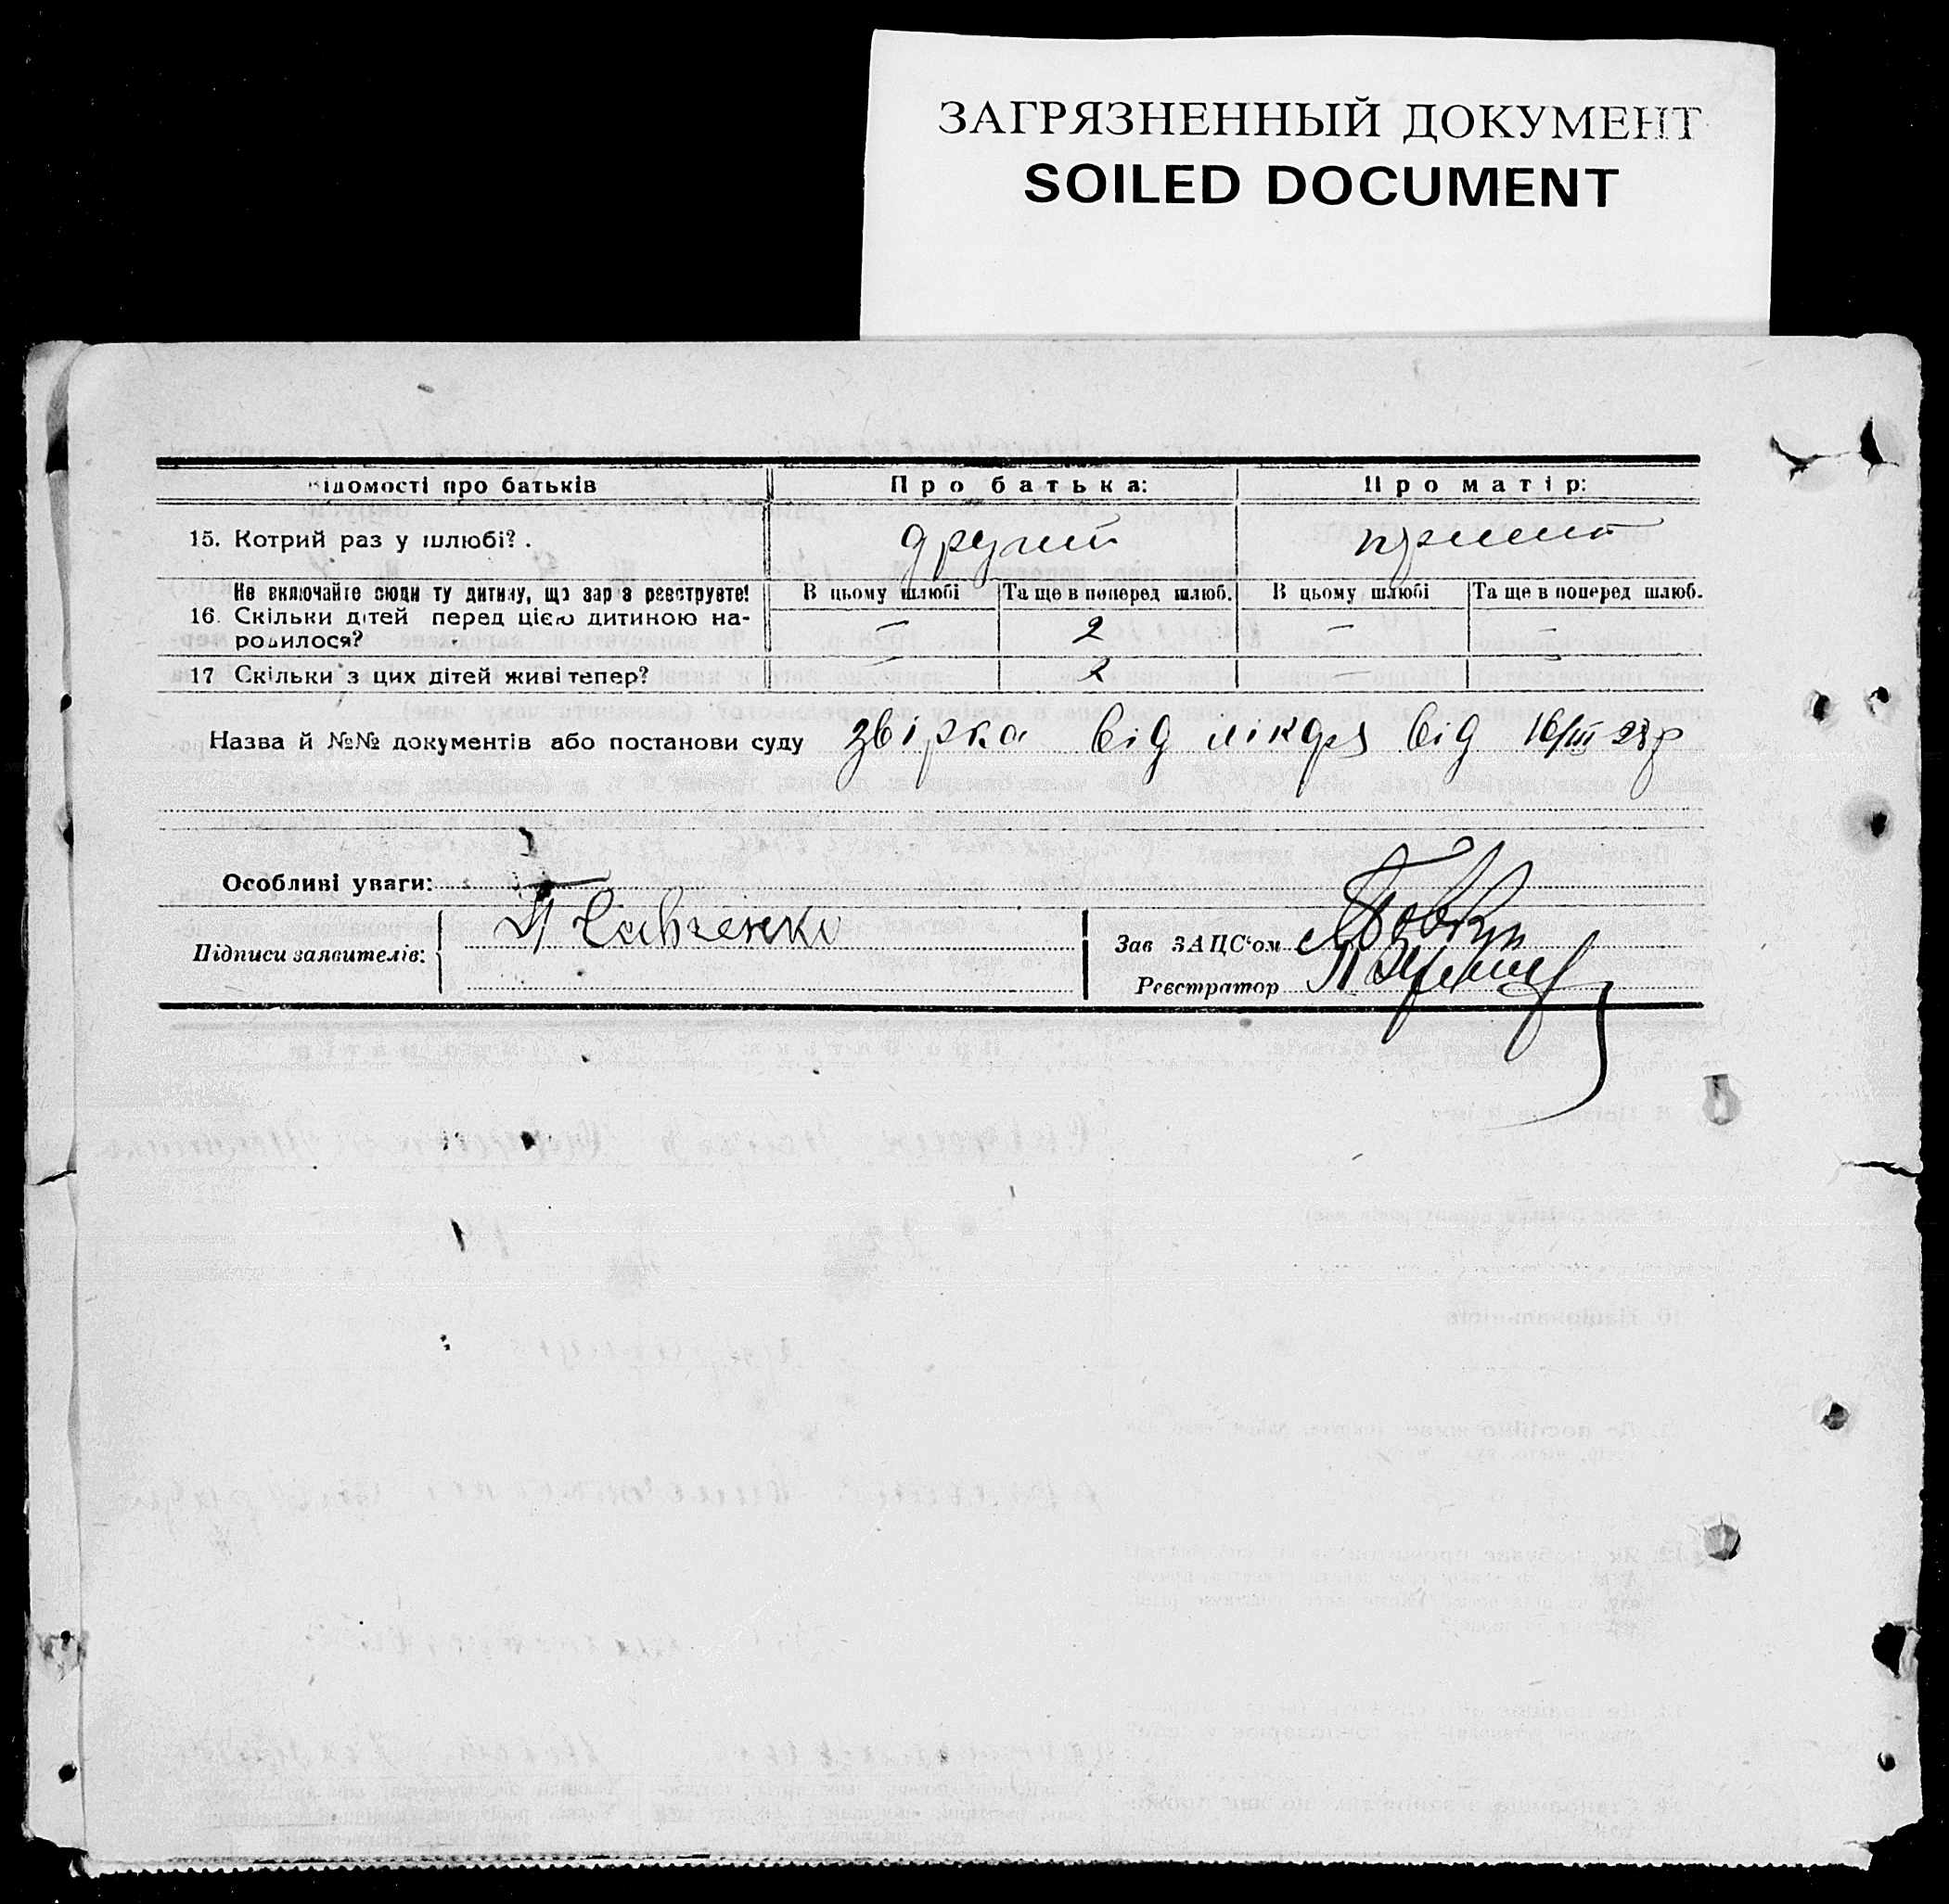 ЗАГРЯЗНЕННЫЙ ДОКУМЕНТ
SOILED DOCUMENT
ідомості про батьків Про батька: Про матір:
15. Котрий раз у шлюбі? . другий
Не включайте сюди ту дитину, що зараз реєструєте! В цьому шлюбі Та ще в поперед шлюб. В цьому шлюбі Та ще в поперед шлюб.
16. Скільки дітей перед цією дитиною на-
родилося? — 2 — —
17 Скільки з цих дітей живі тепер? — 2 — —
Назва й №№ документів або постанови суду від від 16/III 28 р
Особливі уваги:
Підписи заявителів: П Савченко
Зав ЗАЦС'ом
Реєстратор